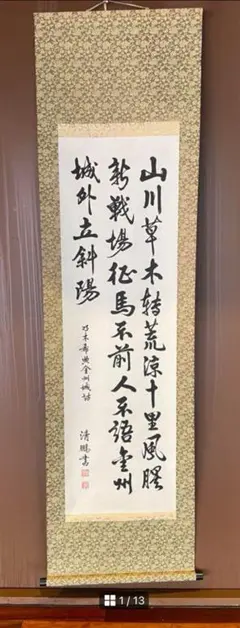 山川草木転荒涼十里風腥
新戦場征馬不前人不語金州
城外立斜陽
乃木希典金州城詩
清鵬書
1/13